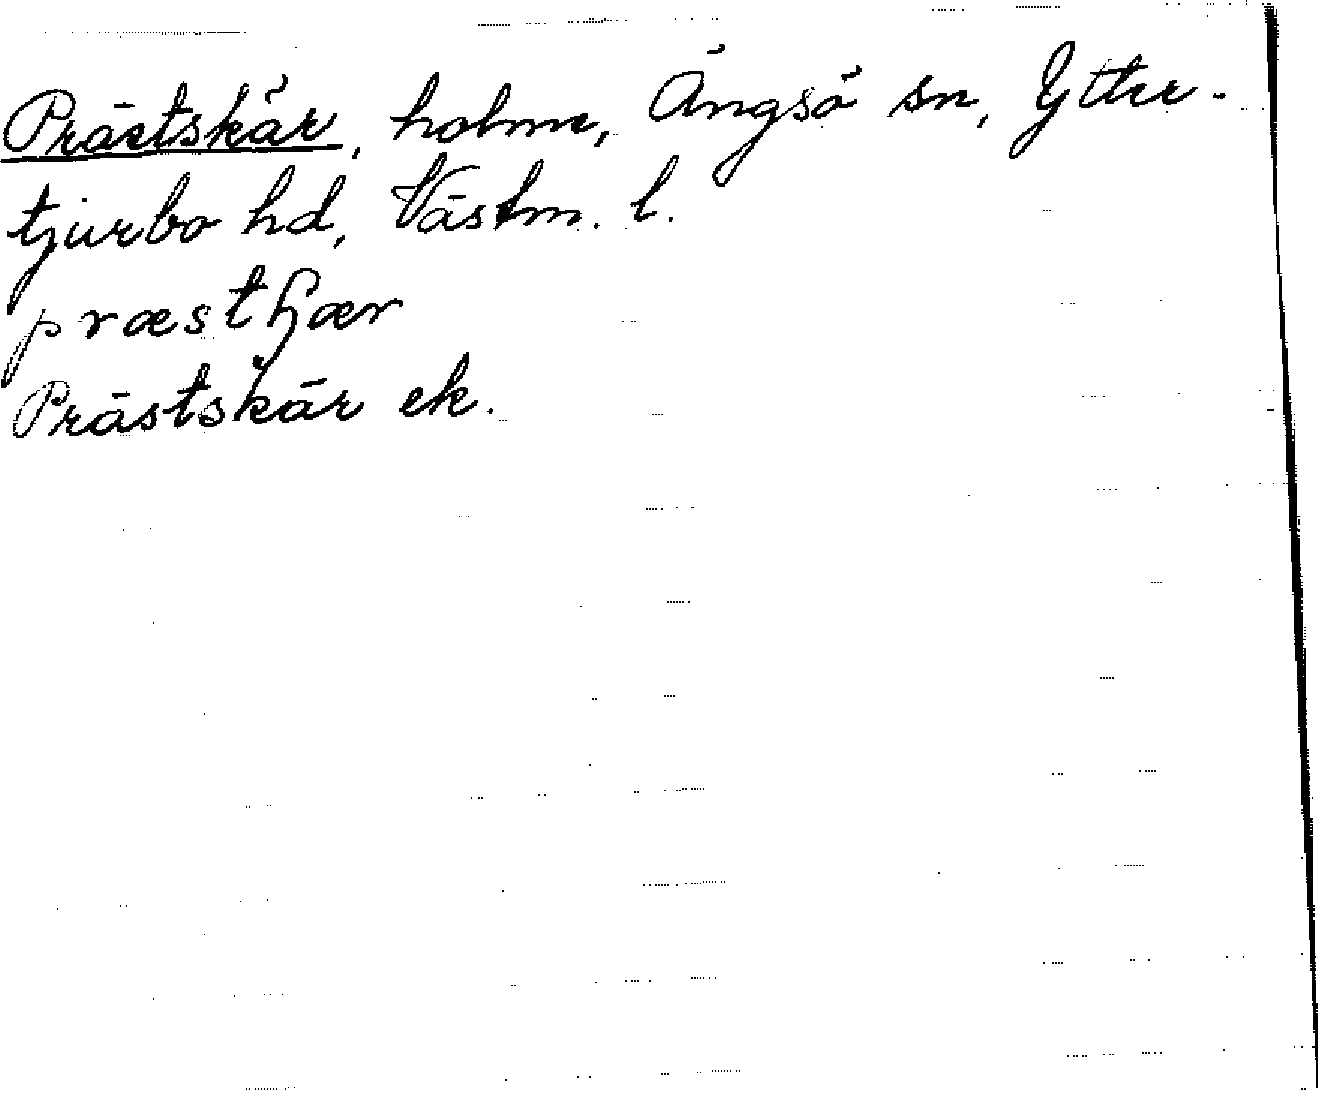 Prästskär, holme, Ängsö sn, Ytter-
tjurbo hd, Västm. l.
præstɧær
Prästskär ek.